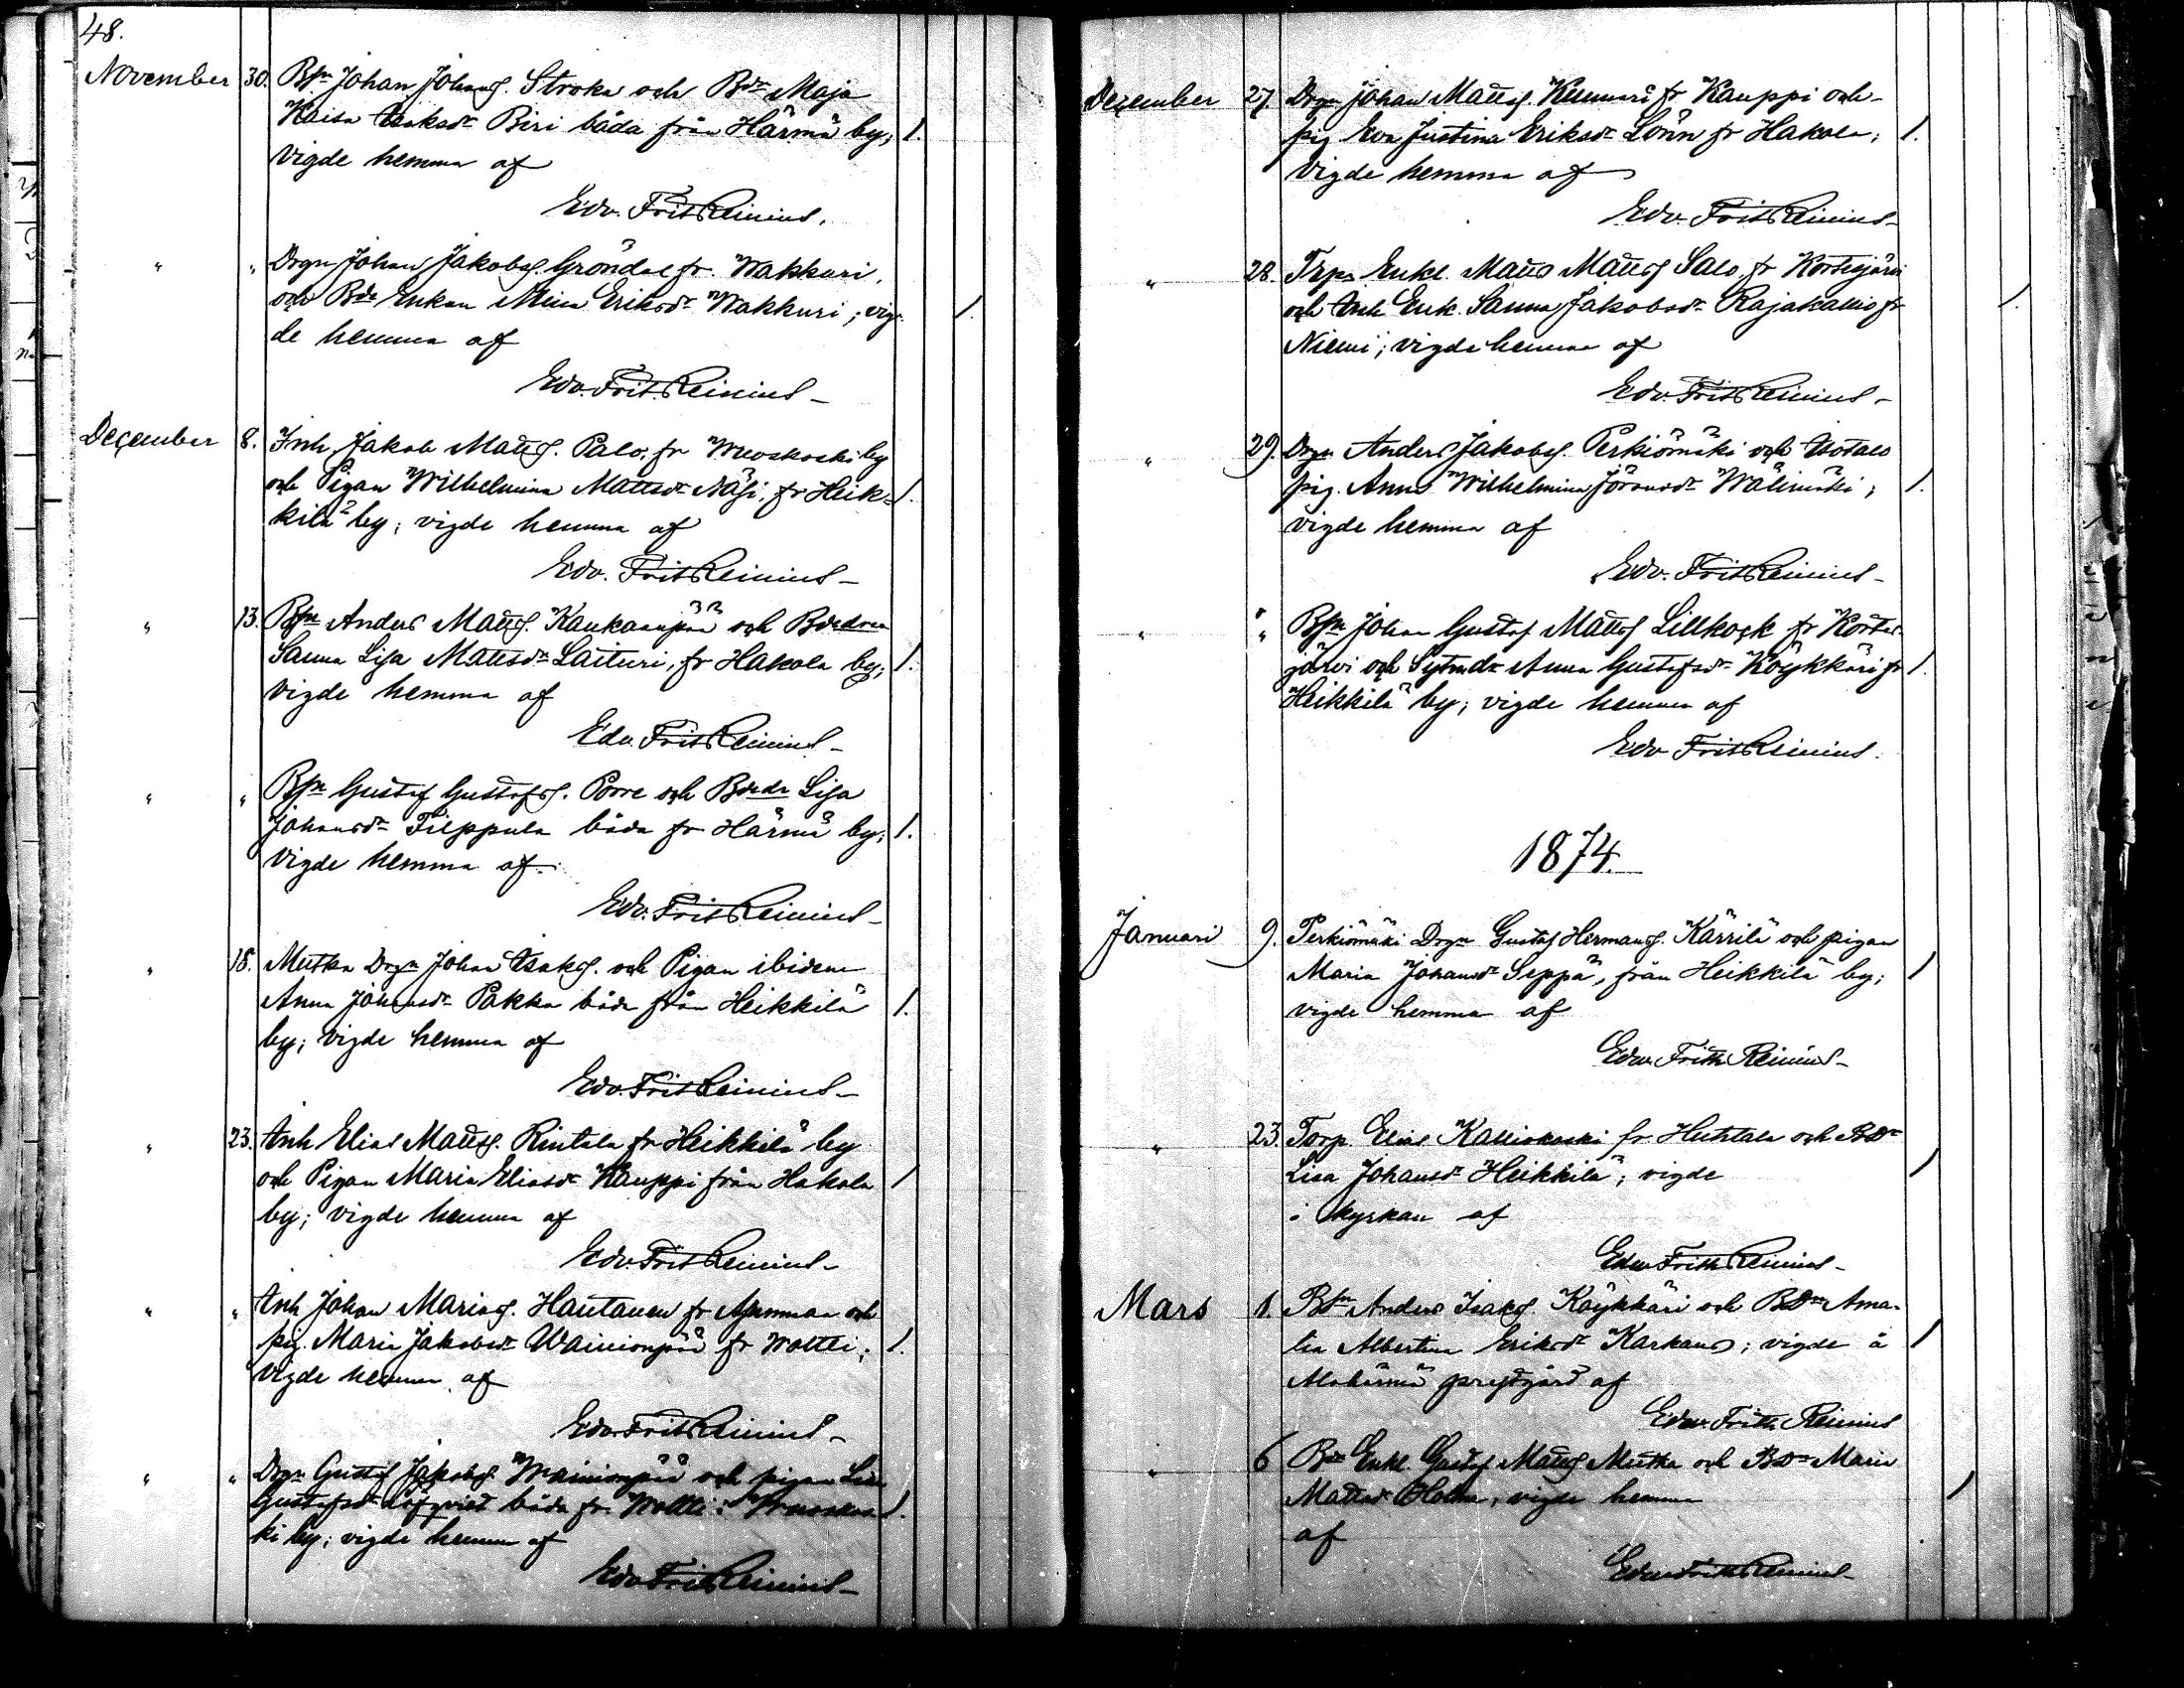 48.
November 30. Bsn Johan Johans. Stroka och Bdr Maja
Kaisa Isaksdr Biri båda från Härmä by; 1.
vigde hemma af
Edv. Frith Reinius.
" " Drgn Johan Jakobss. Gröndal fr. Wakkuri.
och Bde Enkan Mina Eriksdr Wakkuri; vig- 1.
de hemma af
Edv. Frith Reinius
December 8. Inh Jakob Matts. Palo, fr Wuoskoski by
och Pigan Wilhelmina Mattsdr Näsi, fr Heik- 1.
kilä by; vigde hemma af
Edv. Frith Reinius
" 13. Bsn Anders Matts. Kaukaanpää och Bdedren
Sanna Lisa Mattsdr Laituri, fr Hakola by; 1.
vigde hemma af
Edv. Frith Reinius
" " Bsn Gustaf Gustafss. Porre och Bdedr Lisa
Johansdr Filppula båda fr Härmä by; 1.
vigde hemma af
Edv. Frith Reinius
" 18. Mutka Drgn Johan Isaks. och Pigan ibidem
Anna Johansdr Pakka båda från Heikkilä 1.
by; vigde hemma af
Edv. Frith Reinius
" 23. Inh Elias Matts. Rintala fr Heikkilä by
och Pigan Maria Eliasdr Kauppi från Hakola 1
by; vigde hemma af
Edv. Frith Reinius
" " Inh Johan Marias. Hautanen fr och
pig. Maria Jakobsdr Wainionpää fr Woltti; 1.
vigde hemma af
Edv. Frith Reinius
" " Drgn Gustaf Jakobss. Wainionpää och pigan Lisa
Gustafsdr Löfqvist båda fr. Woltti i Wuoskos- 1.
ki by; vigde hemma af
Edv. Frith Reinius
December 27. Drgn Johan Matts. Kunnari fr Kauppi och
pig Eva Justina Eriksdr Lönn fr Hakola; 1.
vigde hemma af
Edv. Frith Reinius
" 28. Trpn Enkl. Matts Matts. Salo fr Kortesjärvi
och Inh Enk. Sanna Jakobsdr Rajakallio fr 1.
Niemi; vigde hemma af
Edv. Frith Reinius
" 29. Drgn Anders Jakobss. Perkiömäki och Isotalo
pig. Anna Wilhelmina Göransdr Wälimäki; 1.
vigde hemma af
Edv. Frith Reinius
" " Bsn Johan Gustaf Matts. Lillkock fr Kortes-
järvi och Sytndr Anna Gustafsdr Köykkäri fr 1.
Heikkilä by; vigde hemma af
Edv Frith Reinius.
1874.
Januari 9. Perkiömäki Drgn Gustaf Hermans. Kärrilä och pigan
Maria Johansdr Seppä, från Heikkilä by; 1
vigde hemma af
Edw. Frith Reinius
" 23. Torp Elias Kalliokoski fr. Huhtala och Bdr
Lisa Johansdr Heikkilä; vigde 1
i kyrkan af
Edw Frith Reinius
Mars 1. Bsn Anders Isaks. Köykkäri och Bdr Ama-
lia Albertina Eriksdr Karkaus; vigde å 1
Alahärmä prestgård af
Edw. Frith Reinius
" 6 Bde Enkl. Gustaf Matts. Mutka och Bdr Maria
Mattsdr Holma, vigde hemma 1
af
Edw Frith Reinius